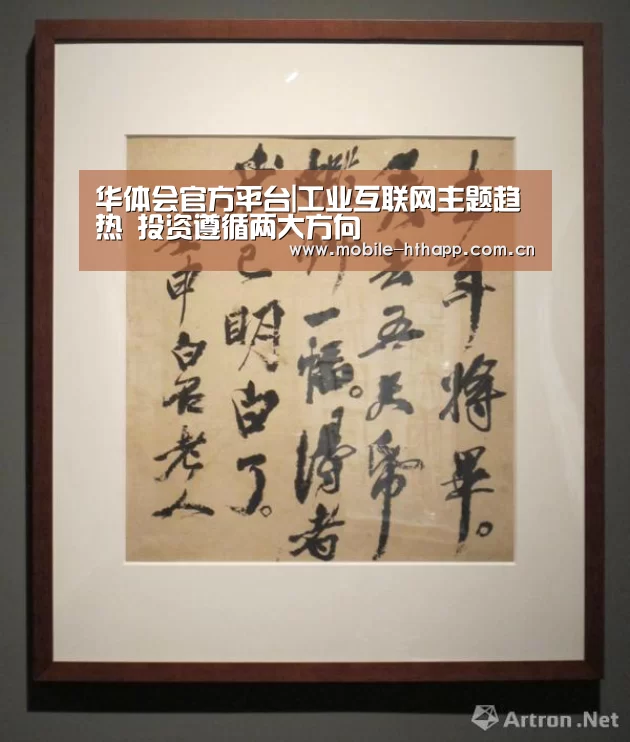 华体会官方平台|工业互联网主题趋
热 投资遵循两大方向
www.mobile-hthapp.com.cn
年將畢。
去五尺紙
一幅。得者
已明白了。
申白石老人
Artron.Net